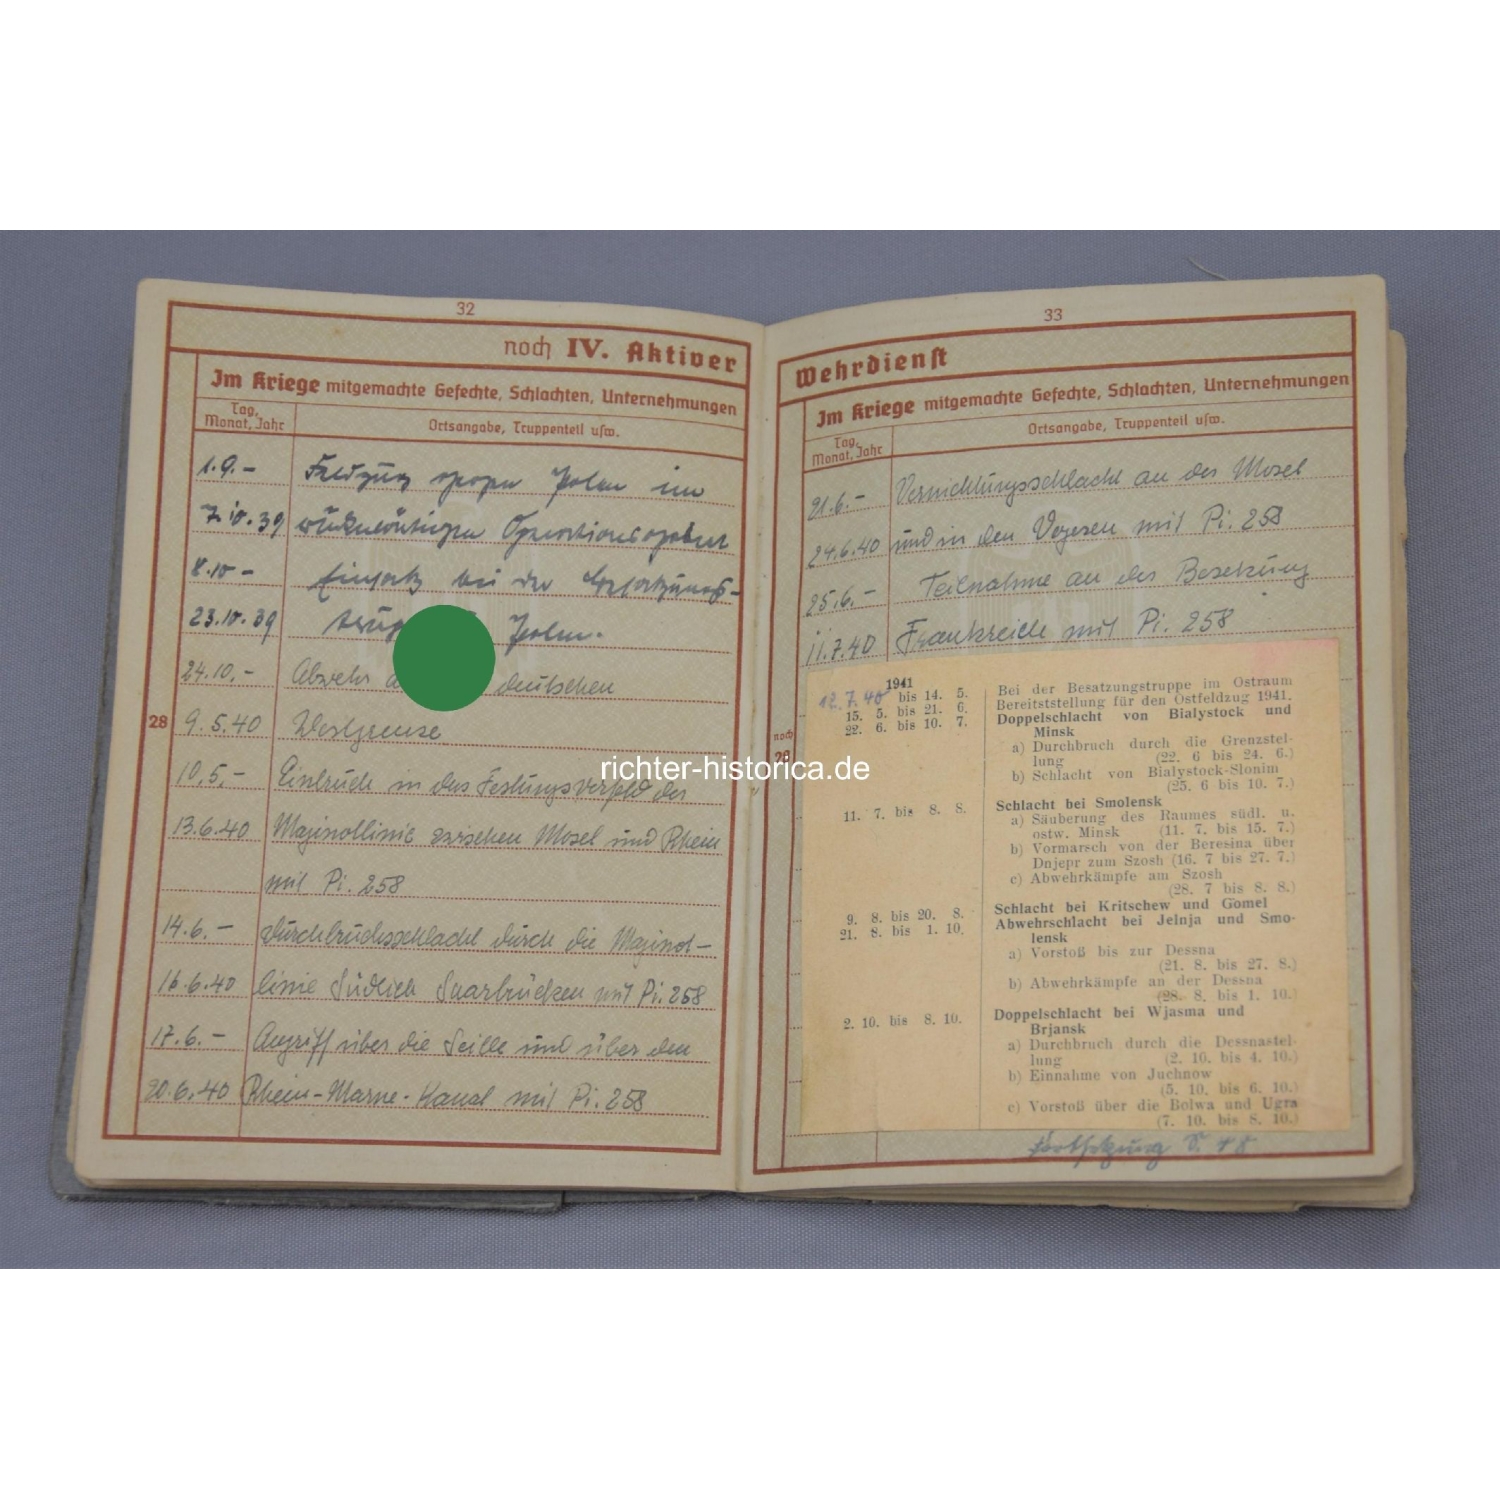 32
noch IV. Aktiver
Im Kriege mitgemachte Gefechte, Schlachten, Unternehmungen
Tag, Monat, Jahr
Ortsangabe, Truppenteil usw.
1.9.- Feldzug gegen Polen im
7.10.39 rückwärtigen Operationsgebiet
8.10- Einsatz bei der Besatzungs-
23.10.39 Polen.
24.10.- Abwehr deutschen
28 9.5.40 Westgrenze
10.5.- Einbruch in das Festungsvorfeld der
13.6.40 Maginotlinie zwischen Mosel und Rhein
mit Pi. 258
14.6.- Durchbruchsschlacht durch die Maginot-
16.6.40 linie südlich Saarbrücken mit Pi. 258
17.6.- Angriff über die Seille und über den
20.6.40 Rhein-Marne-Kanal mit Pi. 258
33
Wehrdienst
Im Kriege mitgemachte Gefechte, Schlachten, Unternehmungen
Tag, Monat, Jahr
Ortsangabe, Truppenteil usw.
21.6.- Vernichtungsschlacht an der Mosel
24.6.40 und in den Vogesen mit Pi. 258
25.6.- Teilnahme an der Besetzung
11.7.40 Frankreichs mit Pi. 258
noch
1941
12.7.40 bis 14. 5. Bei der Besatzungstruppe im Ostraum
15. 5. bis 21. 6. Bereitstellung für den Ostfeldzug 1941.
22. 6. bis 10. 7. Doppelschlacht von Bialystock und
Minsk
a) Durchbruch durch die Grenzstel-
lung (22. 6 bis 24. 6.)
b) Schlacht von Bialystock-Slonim
(25. 6 bis 10. 7.)
11. 7. bis 8. 8. Schlacht bei Smolensk
a) Säuberung des Raumes südl. u.
ostw. Minsk (11. 7. bis 15. 7.)
b) Vormarsch von der Beresina über
Dnjepr zum Szosh (16. 7 bis 27. 7.)
c) Abwehrkämpfe am Szosh
(28. 7 bis 8. 8.)
9. 8. bis 20. 8. Schlacht bei Kritschew und Gomel
21. 8. bis 1. 10. Abwehrschlacht bei Jelnja und Smo-
lensk
a) Vorstoß bis zur Dessna
(21. 8. bis 27. 8.)
b) Abwehrkämpfe an der Dessna
(28. 8. bis 1. 10.)
2. 10. bis 8. 10. Doppelschlacht bei Wjasma und
Brjansk
a) Durchbruch durch die Dessnastel-
lung (2. 10. bis 4. 10.)
b) Einnahme von Juchnow
(5. 10. bis 6. 10.)
c) Vorstoß über die Bolwa und Ugra
(7. 10. bis 8. 10.)
Fortsetzung S.
richter-historica.de